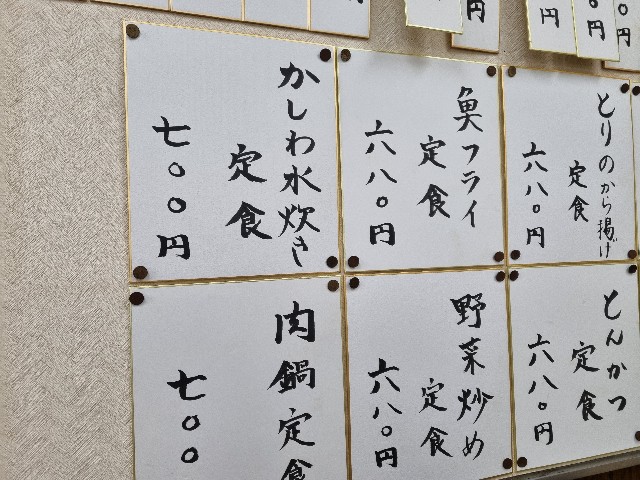 とりのから揚げ
定食
六八〇円
魚フライ
定食
六八〇円
かしわ水炊き
定食
七〇〇円
とんかつ
定食
六八〇円
野菜炒め
定食
六八〇円
肉鍋定食
七〇〇
円
円
円